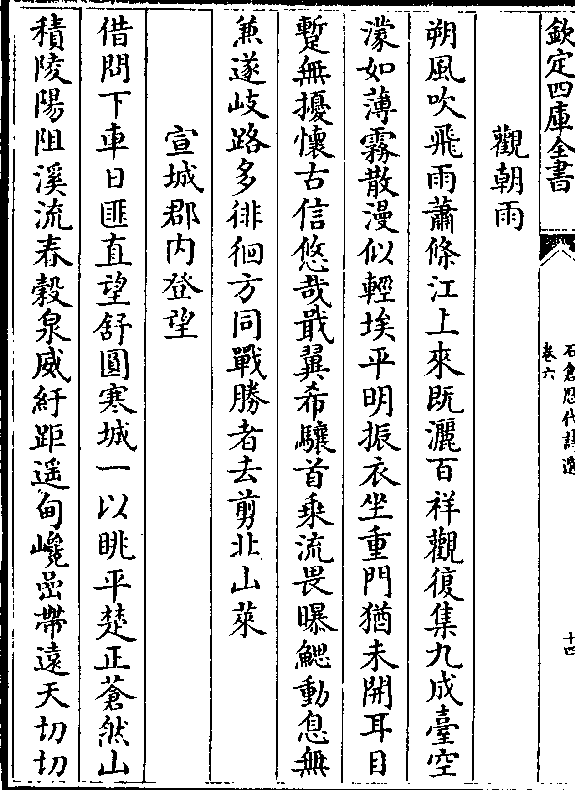 欽定四庫全書
石倉歷代詩選
卷六
十四
觀朝雨
朔風吹飛雨蕭條江上來既灑百祥觀復集九成臺空
濛如薄霧散漫似輕埃平明振衣坐重門猶未開耳目
蹔無擾懷古信悠哉戢翼希驤首乗流畏曝鰓動息無
兼遂岐路多徘徊方同戰勝者去剪北山萊
宣城郡内登望
借問下車日匪直望舒圓寒城一以眺平楚正蒼然山
積陵陽阻溪流春穀泉威紆距遥甸巉嵒帶遠天切切